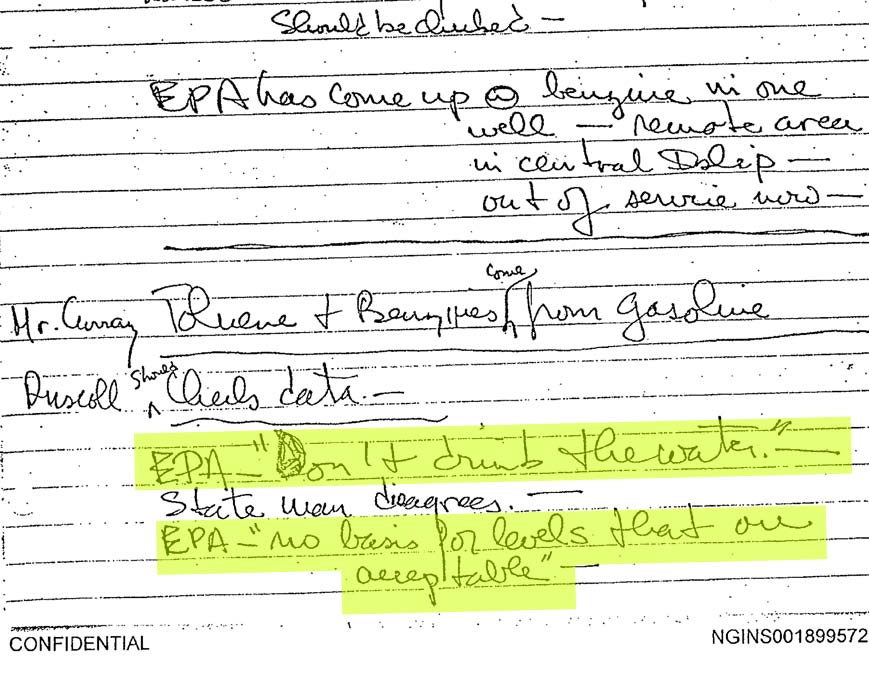 Should be checked —
EPA has come up @ benzine in one
well — remote area
in central Islip —
out of service now —
come
Mr. Curray Toluene + Benzines from gasoline
should
Driscoll check data. —
EPA — "Don't drink the water." —
State man disagrees. —
EPA — "no basis for levels that are
acceptable" —
CONFIDENTIAL
NGINS001899572